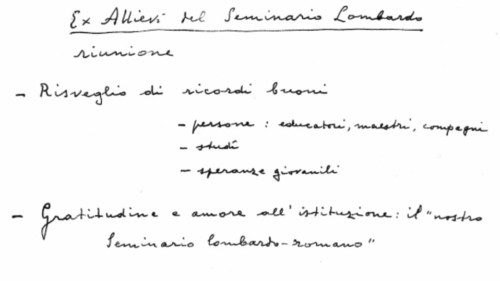 Ex Allievi del Seminario Lombardo
riunione
- Risveglio di ricordi buoni
- persone : educatori, maestri, compagni
- studî
- speranze giovanili
- Gratitudine e amore all'istituzione: il "nostro
Seminario lombardo-romano"